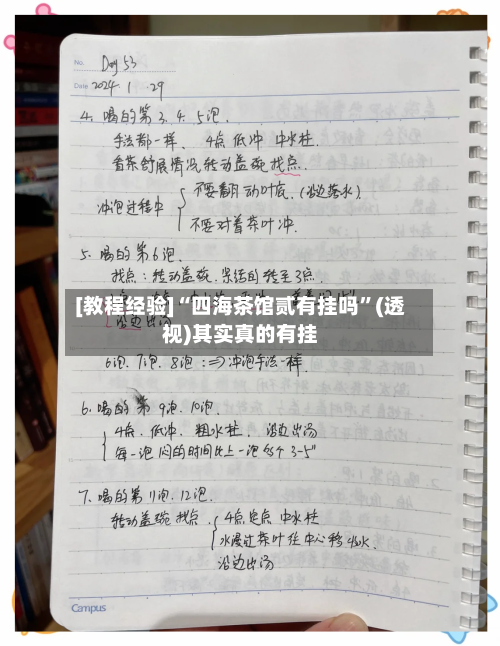 No. Day 53
Date 2024. 1. 29
4. 喝的第3.4.5泡.
手法都一样、4点 低冲 中水柱.
看茶舒展情况 转动盖碗 找点.
冲泡过程中
不要翻动叶底.(沿边落水)
不要对着茶叶冲.
5. 喝的第6泡.
找点:转动盖碗.
[教程经验]“四海茶馆贰有挂吗”(透
视)其实真的有挂
沿边出汤
6泡. 7泡. 8泡:⇒冲泡手法一样.
6. 喝的第9泡. 10泡.
4点. 低冲. 粗水柱. 沿边出汤
每一泡闷的时间比上一泡多 3-5"
7. 喝的第11泡. 12泡.
转动盖碗 找点.
4点定点 中水柱
水漫过茶叶往中心移
沿边出汤
Campus